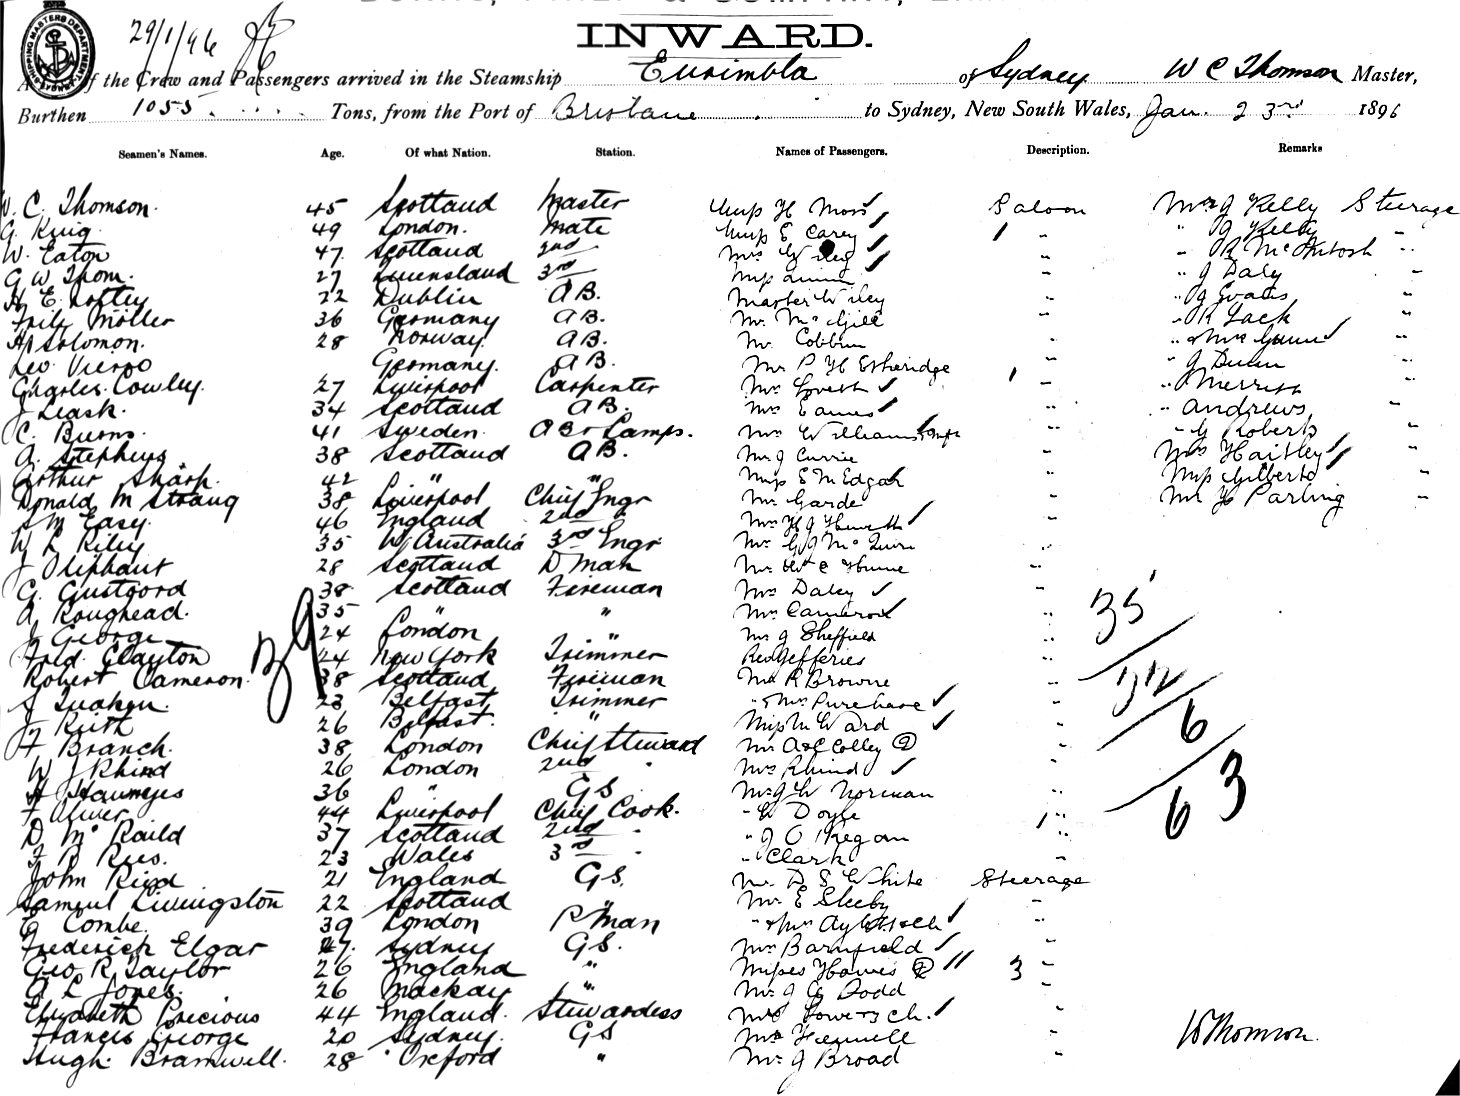 INWARD.
29/1/96
SHIPPING MASTERS DEPARTMENT SYDNEY
of the Crew and Passengers arrived in the Steamship Eurimbla of Sydney W C Thomson Master,
Burthen 1055 Tons, from the Port of Brisbane to Sydney, New South Wales, Jan. 23rd 1896
Seamen's Names. Age. Of what Nation. Station. Names of Passengers. Description. Remarks
W. C. Thomson. 45 Scotland Master Miss H Moss Saloon Mr J Kelly Steerage
G. King. 49 London. Mate Miss E Carey 1 " " J Kelly "
W. Eaton 47. Scotland 2nd Mrs Wiley " " R McIntosh "
G W Thom. 27 Queensland 3rd Miss " " J Daly "
H E 22 Dublin A B. Master Wiley " " J Evans "
Fritz Möller 36 Germany A B. Mr McGill " " R Jack "
H Solomon. 28 Norway. A B. Mr Cobbin " " & Mrs Gunn "
Leo Germany. A B. Mr P H Etheridge " " J Dunn "
Charles Cowley. 27 Liverpool Carpenter Mrs 1 " " Merritt "
J Leask. 34 Scotland A B. Mrs Eames " " Andrews "
C. Burns. 41 Sweden. A B & Lamps. Mr Williams " " G Roberts
A. Stephens. 38 Scotland A B. Mr J Currie " Mrs Haitley "
Arthur Sharp. 42 " " Miss E M Edgar " Miss Gilberto "
Donald M Strang 38 Liverpool Chief Engr Mr Garde " Mr H Parling "
S M Easy. 46 England 2nd Mrs H J "
W L Riley 35 W Australia 3rd Engr Mr G J "
J Oliphant 28 Scotland D Man Mr C Hume "
G. Gustgord 38 Scotland Fireman Mrs Daley "
A Roughead. 35 " " Mrs Cameron "
J George 24 London " Mr J Sheffield "
Fred. Clayton 24 New York Trimmer Jefferies "
Robert Cameron. 38 Scotland Fireman Mr R Browne "
J 23 Belfast Trimmer " & Mrs Purchase "
J Keith 26 Belfast. " Miss M Ward "
F Branch. 38 London Chief Steward Mr A & C Colley (2) "
W J Rhind 26 London 2nd Mrs Rhind "
H 36 " G S. Mr J W Norman "
F Oliver 44 Liverpool Chief Cook. " W Doyle "
D McRaild 37 Scotland 2nd " " J O'Regan 1 "
J R Rees. 23 Wales 3rd " " Clark "
John Ridd 21 England G S. Mr D S White Steerage
Samuel Livingston 22 Scotland " Mr E Sleeby "
G Combe. 39 London P Man " & Mrs "
Frederick Elgar 27. Sydney G S. Mrs Barnfield "
Geo R Taylor 26 England " Misses Hawes (2) 3 "
A L Jones. 26 Mackay " Mr J G Dodd "
Elizabeth Precious 44 England. Stewardess Mrs "
Francis George 20 Sydney. G S Mr "
Hugh Bramwell. 28 Oxford " Mr J Broad "
39
35
6
63
W Thomson.